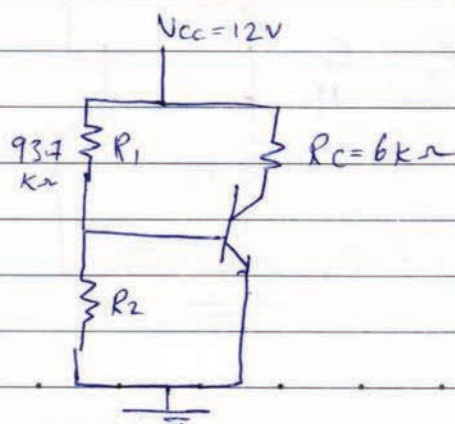 Vcc=12V
93.7 R1 RC=6KΩ
KΩ
R2